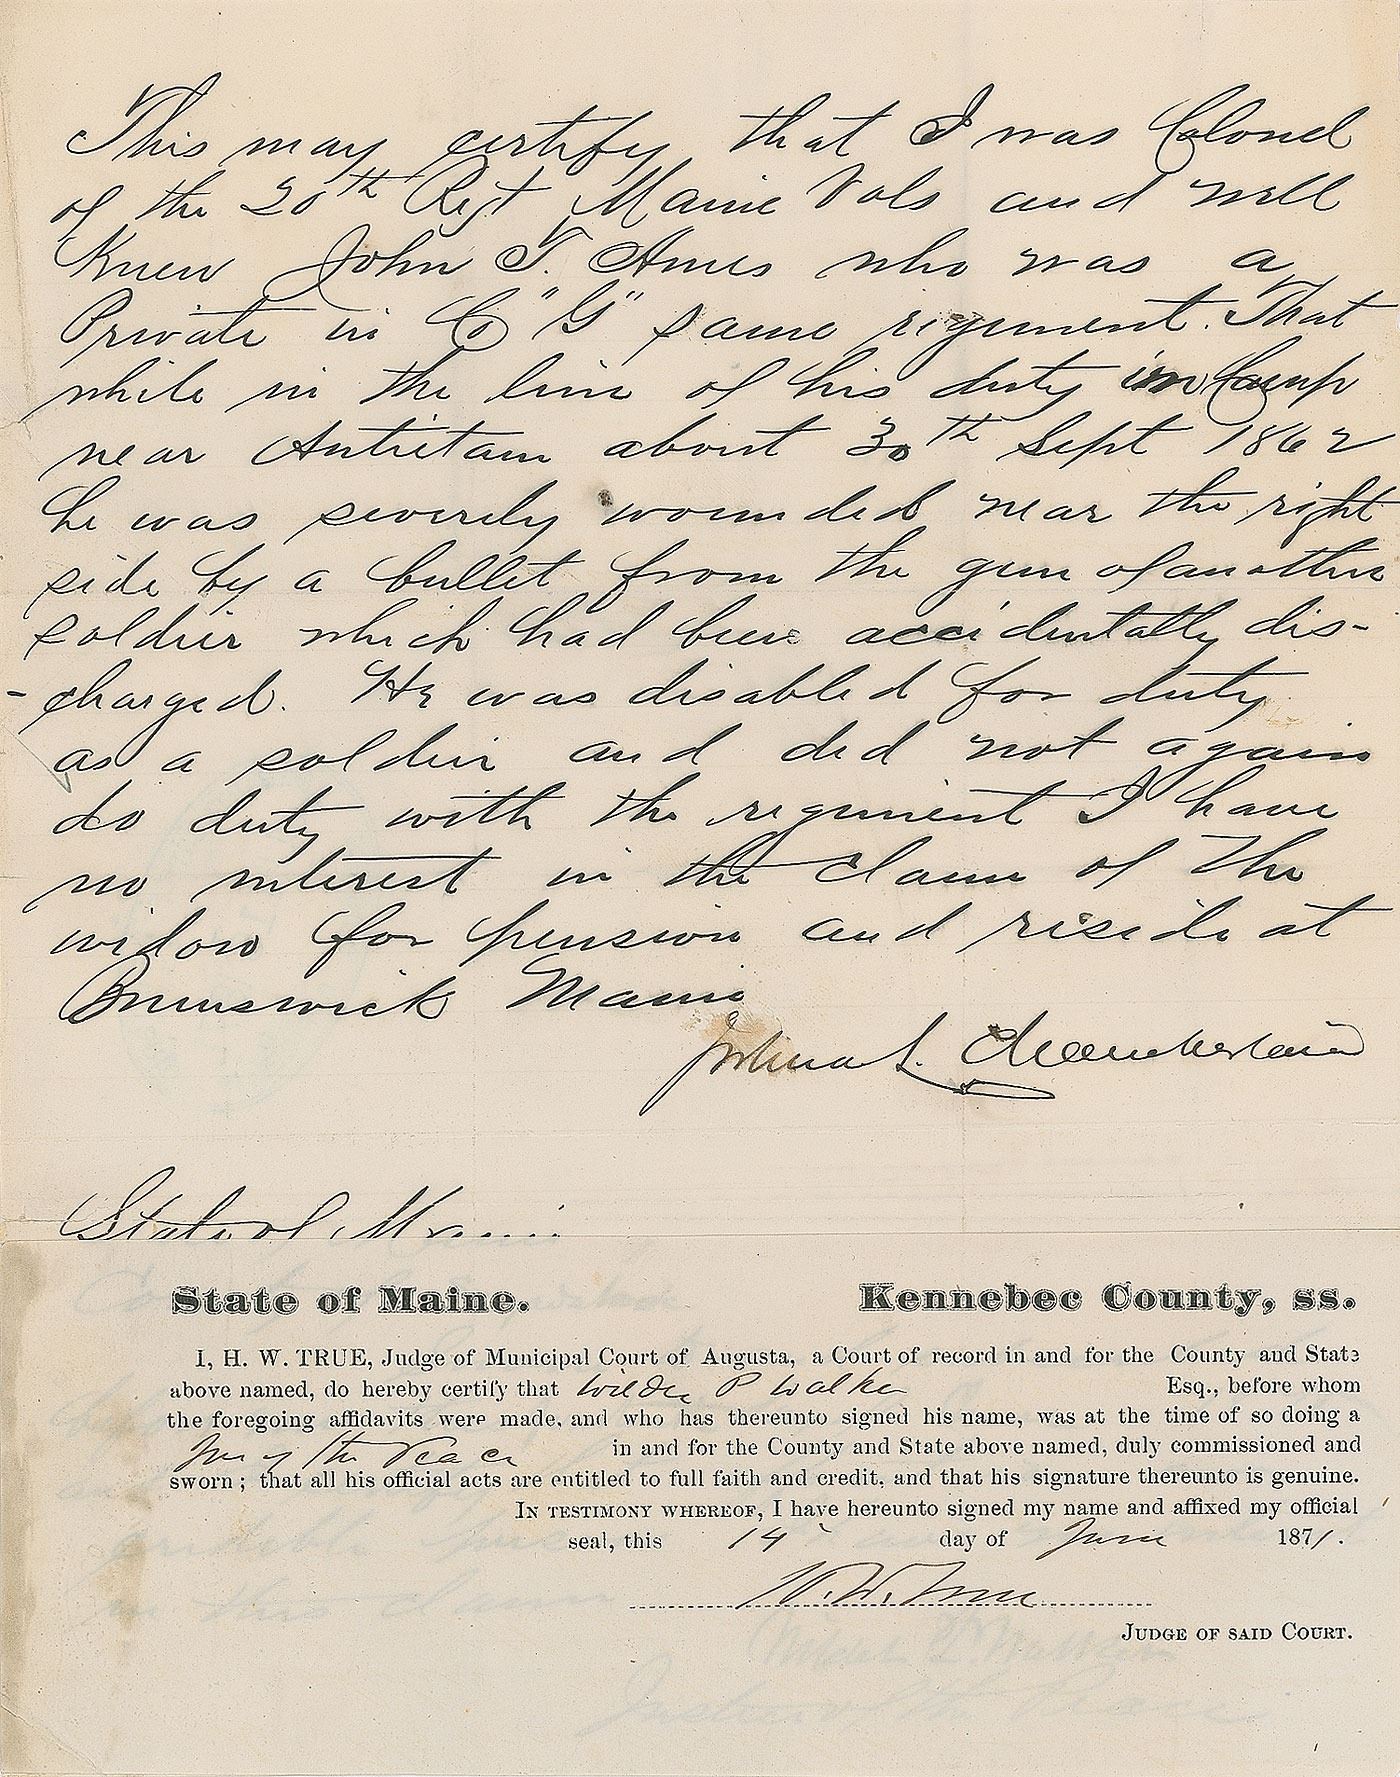 This may certify that I was Colonel
of the 20th Regt Maine Vols and well
knew John T. Ames who was a
Private in Co "G" same regiment. That
while in the line of his duty in Camp
near Antietam about 30th Sept 1862
he was severely wounded near the right
side by a bullet from the gun of another
soldier which had been accidentally dis-
-charged. He was disabled for duty
as a soldier and did not again
do duty with the regiment I have
no interest in the claim of the
widow for pension and reside at
Brunswick Maine
Joshua L. Chamberlain
State of Maine
State of Maine. Kennebec County, ss.
I, H. W. TRUE, Judge of Municipal Court of Augusta, a Court of record in and for the County and State
above named, do hereby certify that Wilder P Walker Esq., before whom
the foregoing affidavits were made, and who has thereunto signed his name, was at the time of so doing a
Jus of the Peace in and for the County and State above named, duly commissioned and
sworn; that all his official acts are entitled to full faith and credit, and that his signature thereunto is genuine.
IN TESTIMONY WHEREOF, I have hereunto signed my name and affixed my official
seal, this 14 day of June 1871.
H. W. True
JUDGE OF SAID COURT.